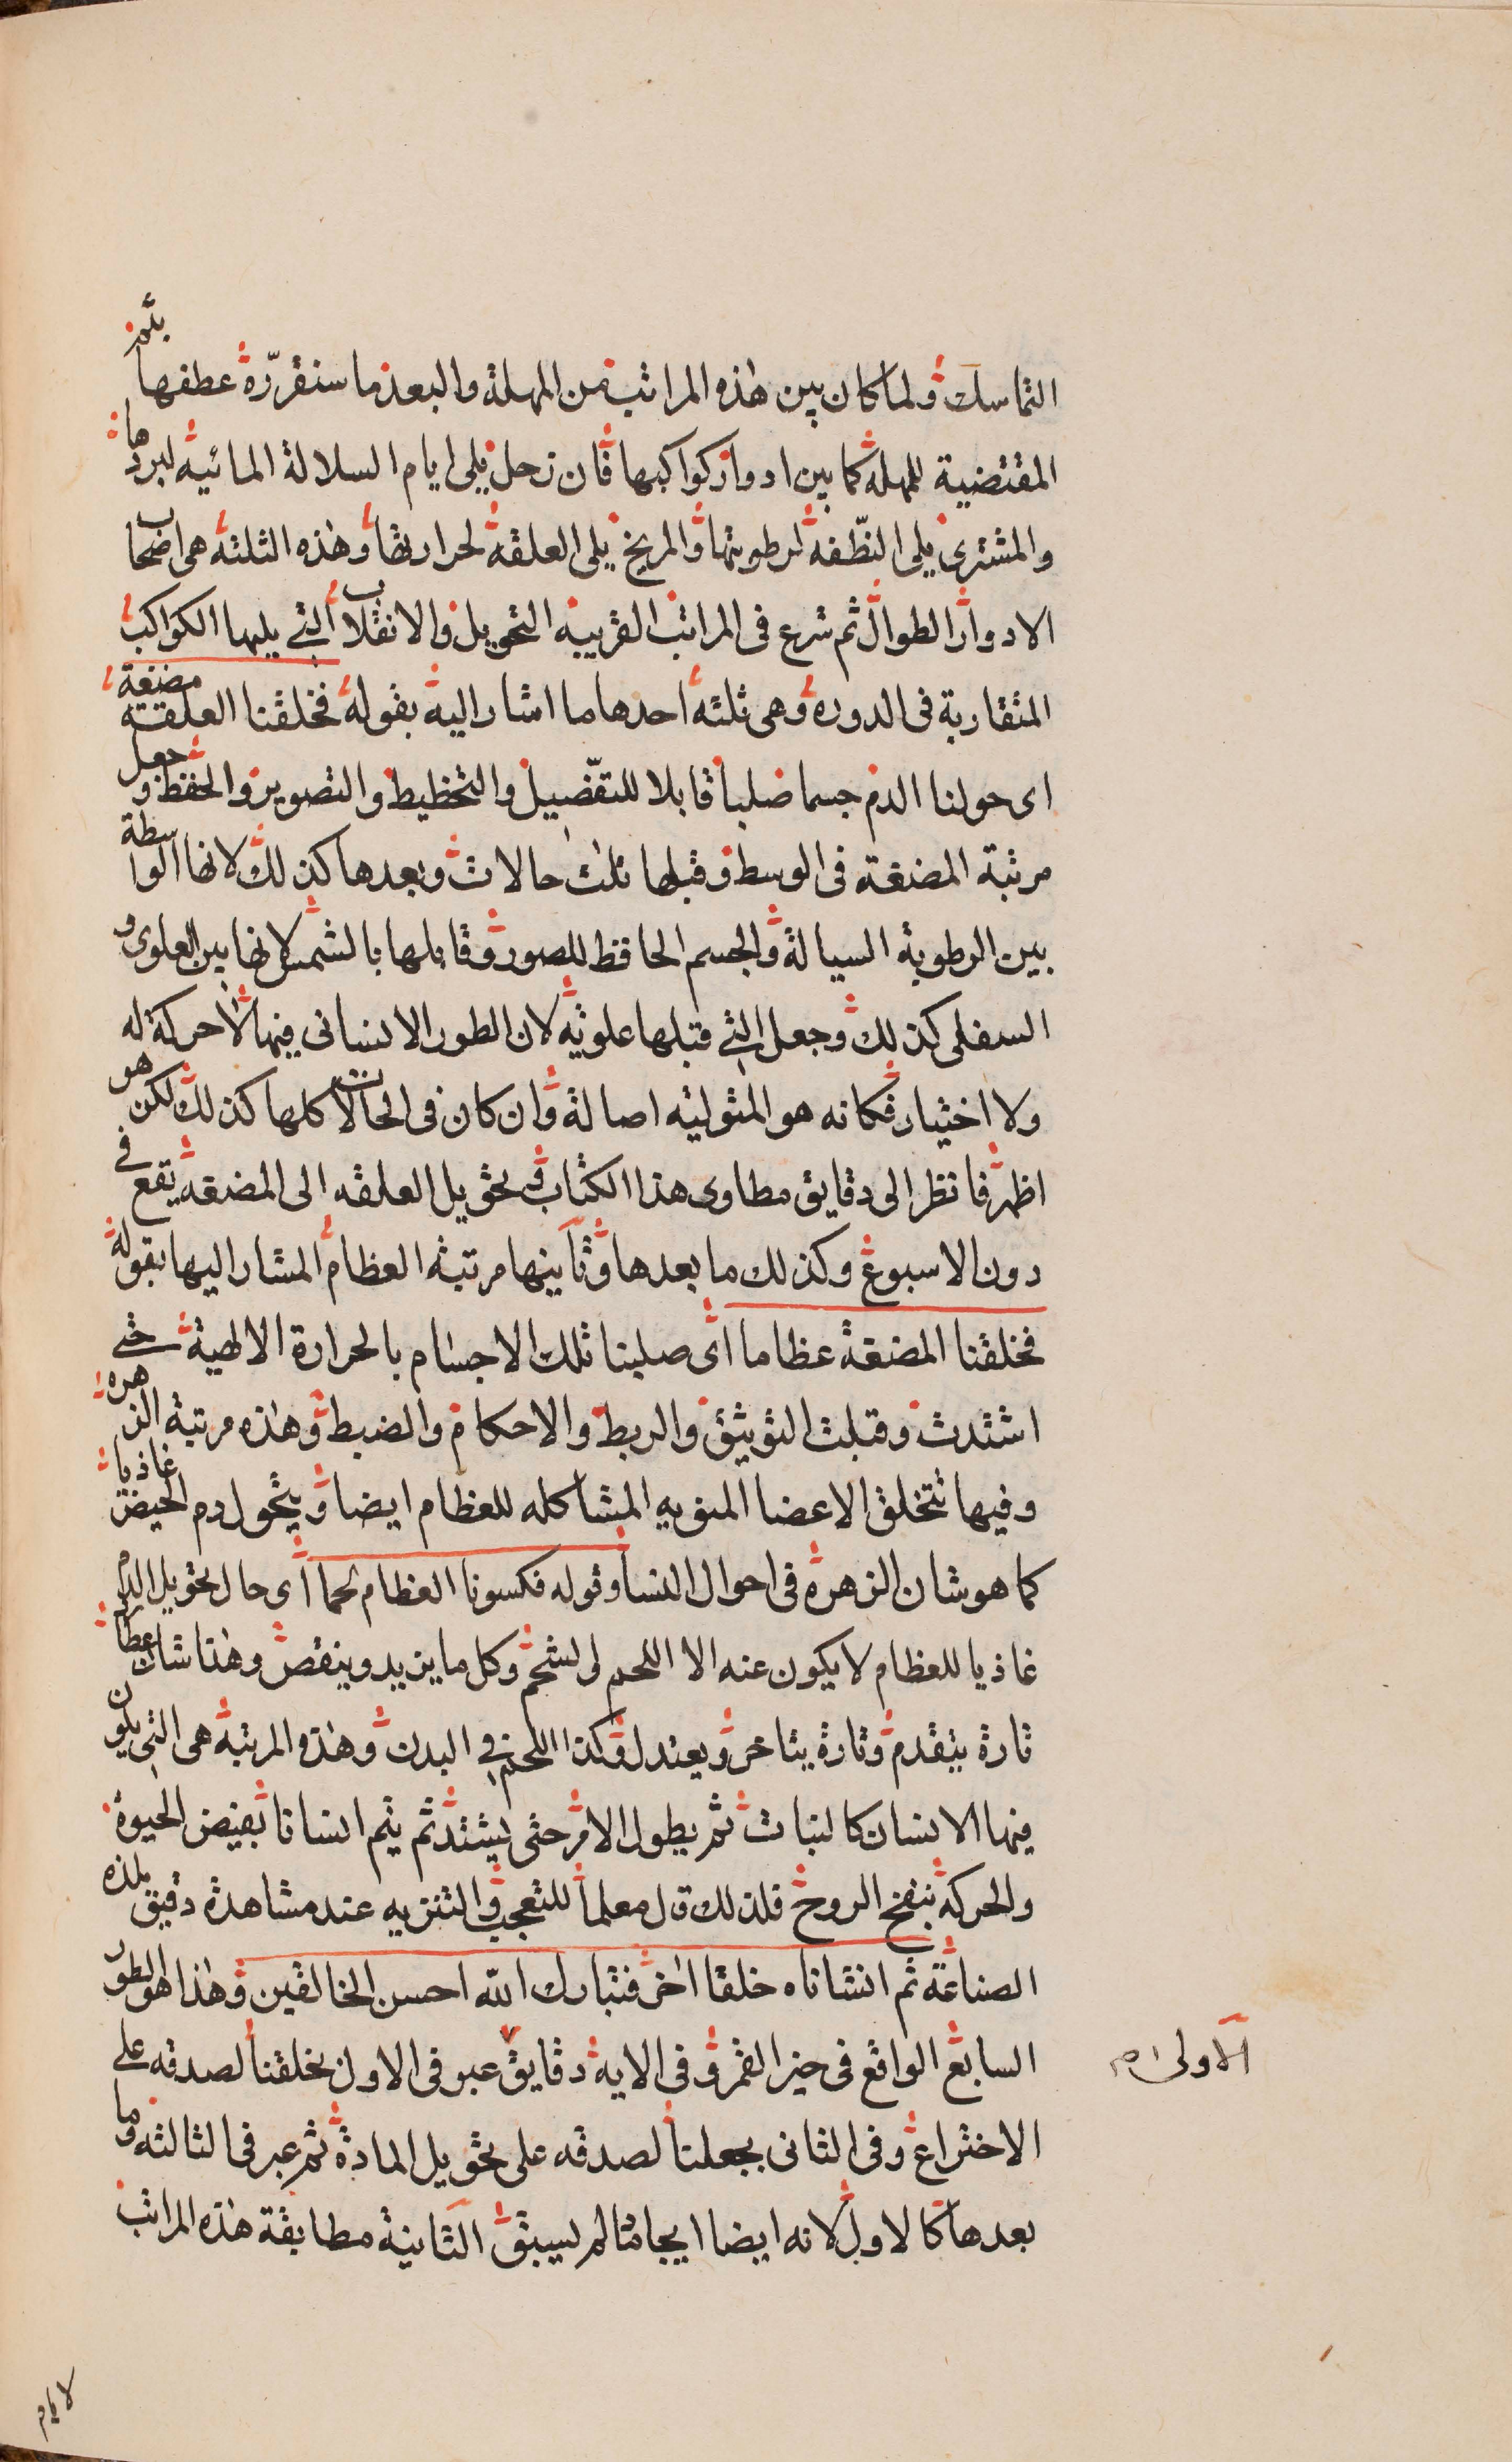 التماسك ولما كان بين هذه المراتب من المهلة والبعد ما سنقرّره عطفها بثم
المقتضية للمهلة كما بين ادوار كواكبها فان زحل يلى ايام السلالة المائيه لبردها
والمشترى يلى النطفه لرطوبتها والمريخ يلى العلقه لحرارتها وهذه الثلثه هى اصحاب
الادوار الطوال ثم شرع فى المراتب القريبه التحويل والانقلاب التى يليها الكواكب
المتقاربة فى الدوره وهى ثلثه احدها ما اشار اليه بقوله فخلقنا العلقه مضغة
اى حولنا الدم جسما صلبا قابلا للتفصيل والتخطيط والتصوير والحفظ وجعل
مرتبة المضغة فى الوسط وقبلها ثلث حالات وبعدها كذلك لانها الواسطة
بين الرطوبة السيالة والجسم الحافظ للصور وقابلها بالشمس لانها بين العلوى و
السفلى كذلك وجعل التى قبلها علويه لان الطور الانسانى فيها لا حركة له
ولا اختيار فكانه هو المتوليه اصالة وان كان فى الحالات كلها كذلك لكن هو
اظهر فانظر الى دقايق مطاوى هذا الكتاب فى تحويل العلقه الى المضغه يقع فى
دون الاسبوع وكذلك ما بعدها وثانيها مرتبة العظام المشار اليها بقوله
فخلقنا المضغة عظاما اى صلبنا تلك الاجسام بالحرارة الالهية حتى
اشتدت وقبلت التوثيق والربط والاحكام والضبط وهذه مرتبة الزهره
وفيها تتخلق الاعضا المنويه المشاكله للعظام ايضا ويتحول دم الحيض غاذيا
كما هو شان الزهره فى احوال النسا وقوله فكسونا العظام لحما اى حال تحويل الدم
غاذيا للعظام لا يكون عنه الا اللحم والشحم وكل ما يزيد وينقص وهذا شان عطارد
تارة يتقدم وتارة يتاخر ويعتدل وكذا اللحم فى البدن وهذه المرتبة هى التى يكون
فيها الانسان كالنبات ثم يطول الامر حتى يشتد ثم يتم انسانا بفيض الحيوة
والحركة بنفخ الروح فلذلك قال معلما للتعجب والتنزيه عند مشاهدة دقيق هذه
الصناعة ثم انشاناه خلقا اخر فتبارك الله احسن الخالقين وهذا هو الطور
السابع الواقع فى حيز القمر وفى الايه دقايق عبر فى الاول بخلقنا لصدقه على
الاولى م
الاختراع وفى الثانى بجعلنا لصدقه على تحويل المادة ثم عبر فى الثالثه وما
بعدها كالاول لانه ايضا ايجاد ما لم يسبق الثانية مطابقة هذه المراتب
لايام